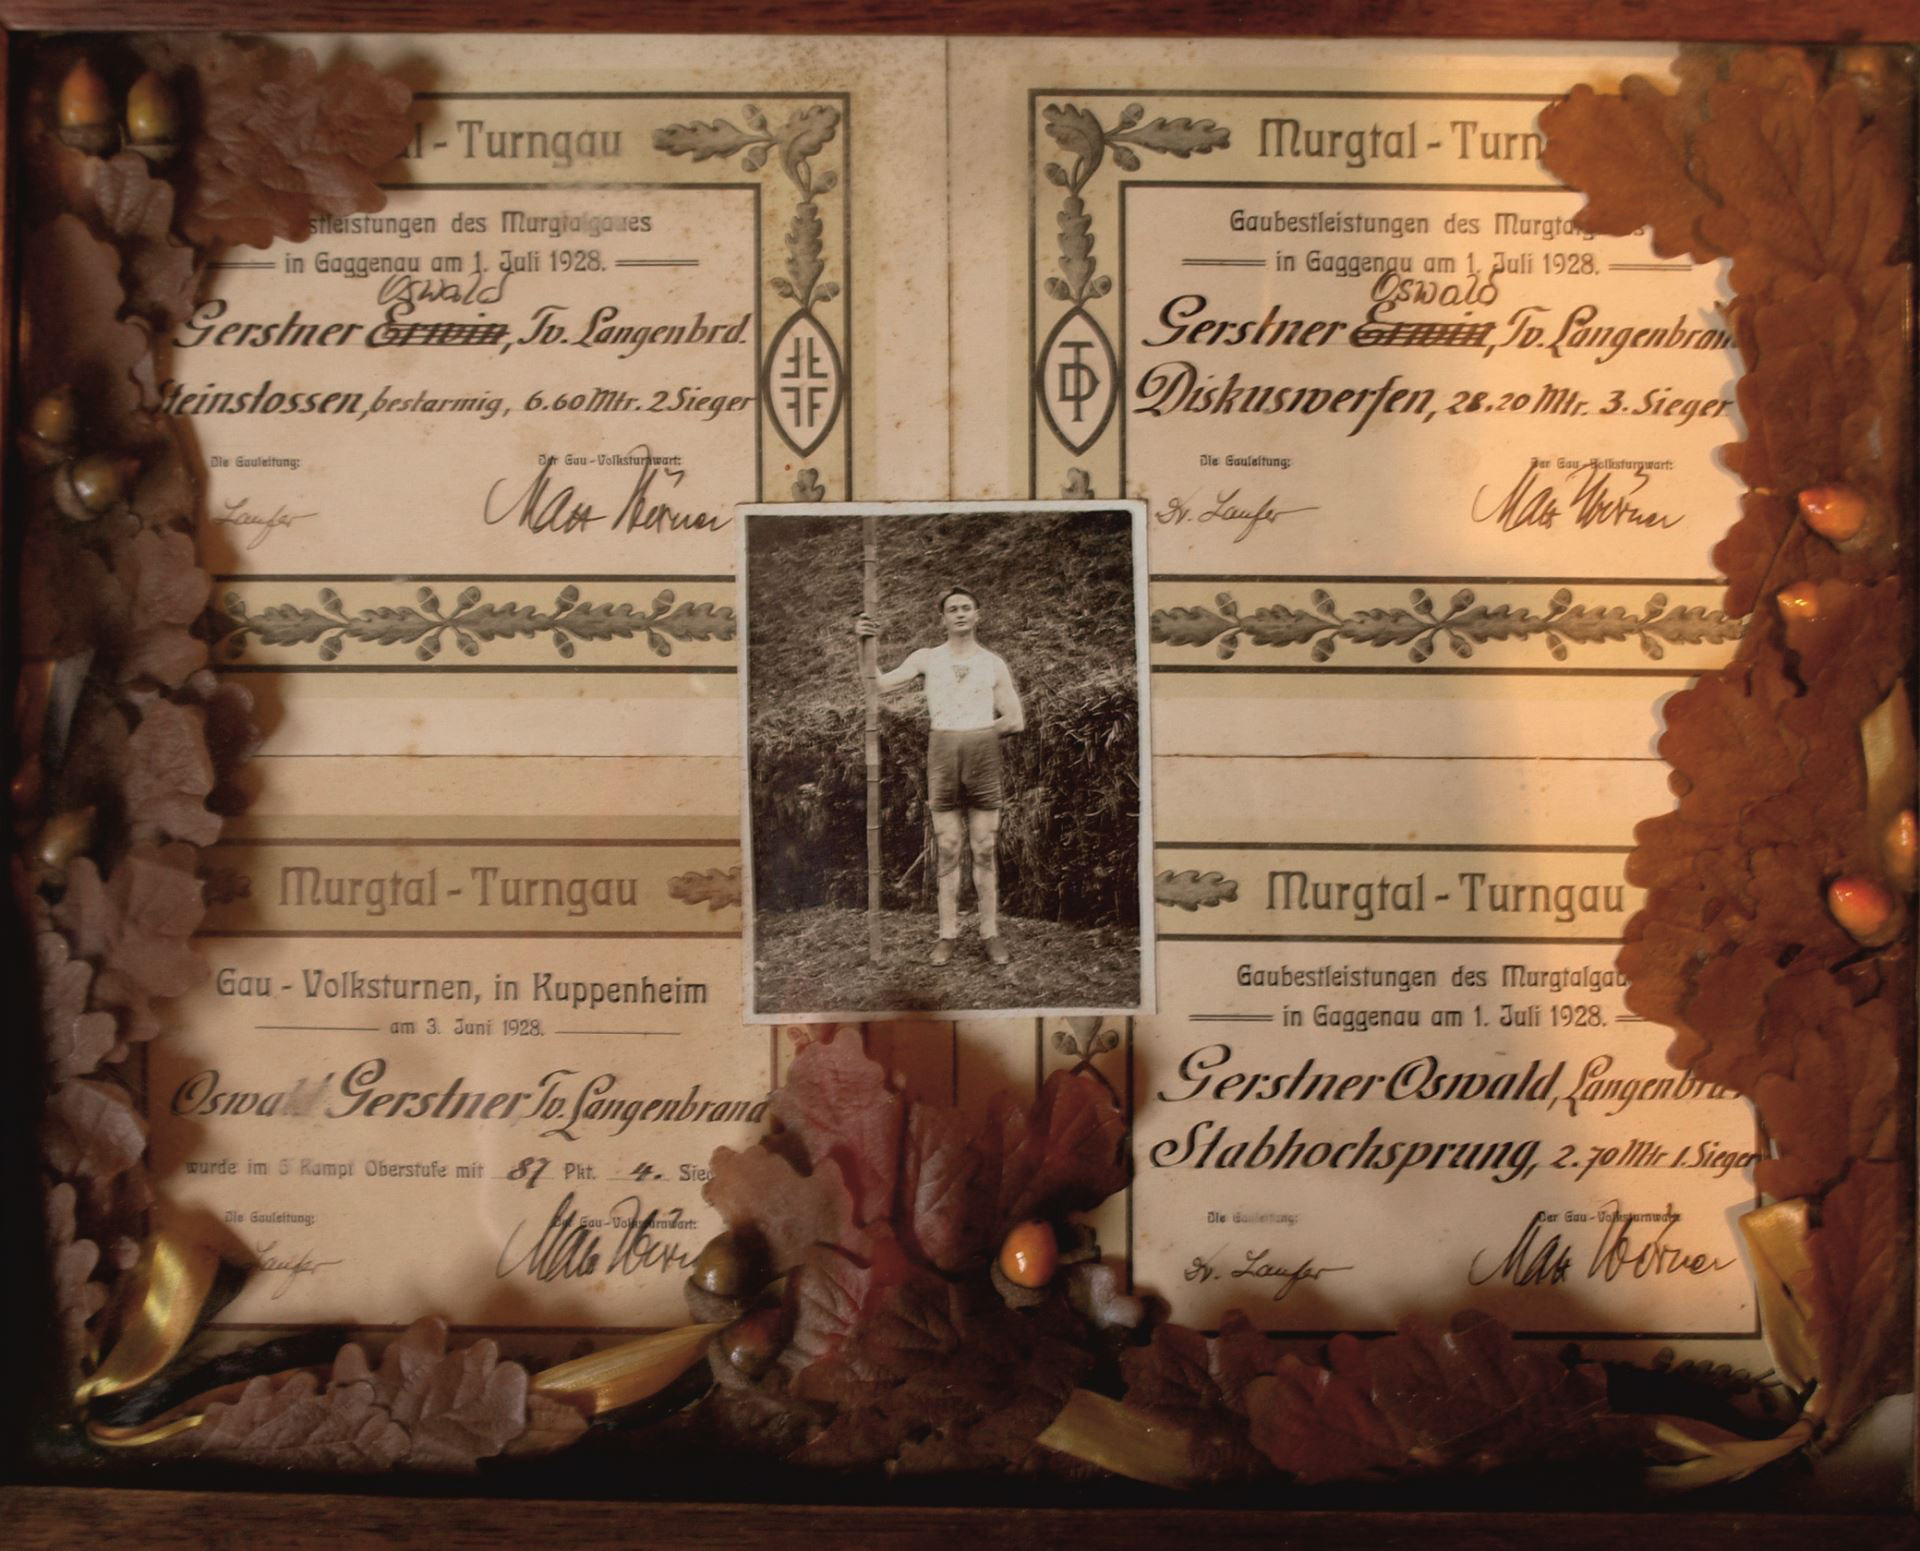 -Turngau
stleistungen des Murgtalgaues
in Gaggenau am 1. Juli 1928.
Oswald
Gerstner Erwin, Tv. Langenbrd.
teinstossen, bestarmig, 6.60 Mtr. 2 Sieger
Die Gauleitung: Der Gau-Volksturnwart:
Laufer Max Werner
Murgtal-Turn
Gaubestleistungen des Murgtalgaues
in Gaggenau am 1. Juli 1928.
Oswald
Gerstner Erwin, Tv. Langenbran
Diskuswerfen, 28.20 Mtr. 3. Sieger
Die Gauleitung: Der Gau-Volksturnwart:
Dr. Laufer Max Werner
Murgtal-Turngau
Gau-Volksturnen, in Kuppenheim
am 3. Juni 1928.
Oswald Gerstner Tv. Langenbrand
wurde im 6 Kampf Oberstufe mit 87 Pkt. 4. Sieg
Die Gauleitung: Der Gau-Volksturnwart:
Laufer Max Wern
Murgtal-Turngau
Gaubestleistungen des Murgtalgau
in Gaggenau am 1. Juli 1928.
Gerstner Oswald, Langenbran
Stabhochsprung, 2.70 Mtr 1. Sieger
Die Gauleitung: Der Gau-Volksturnwart
Dr. Laufer Max Werner